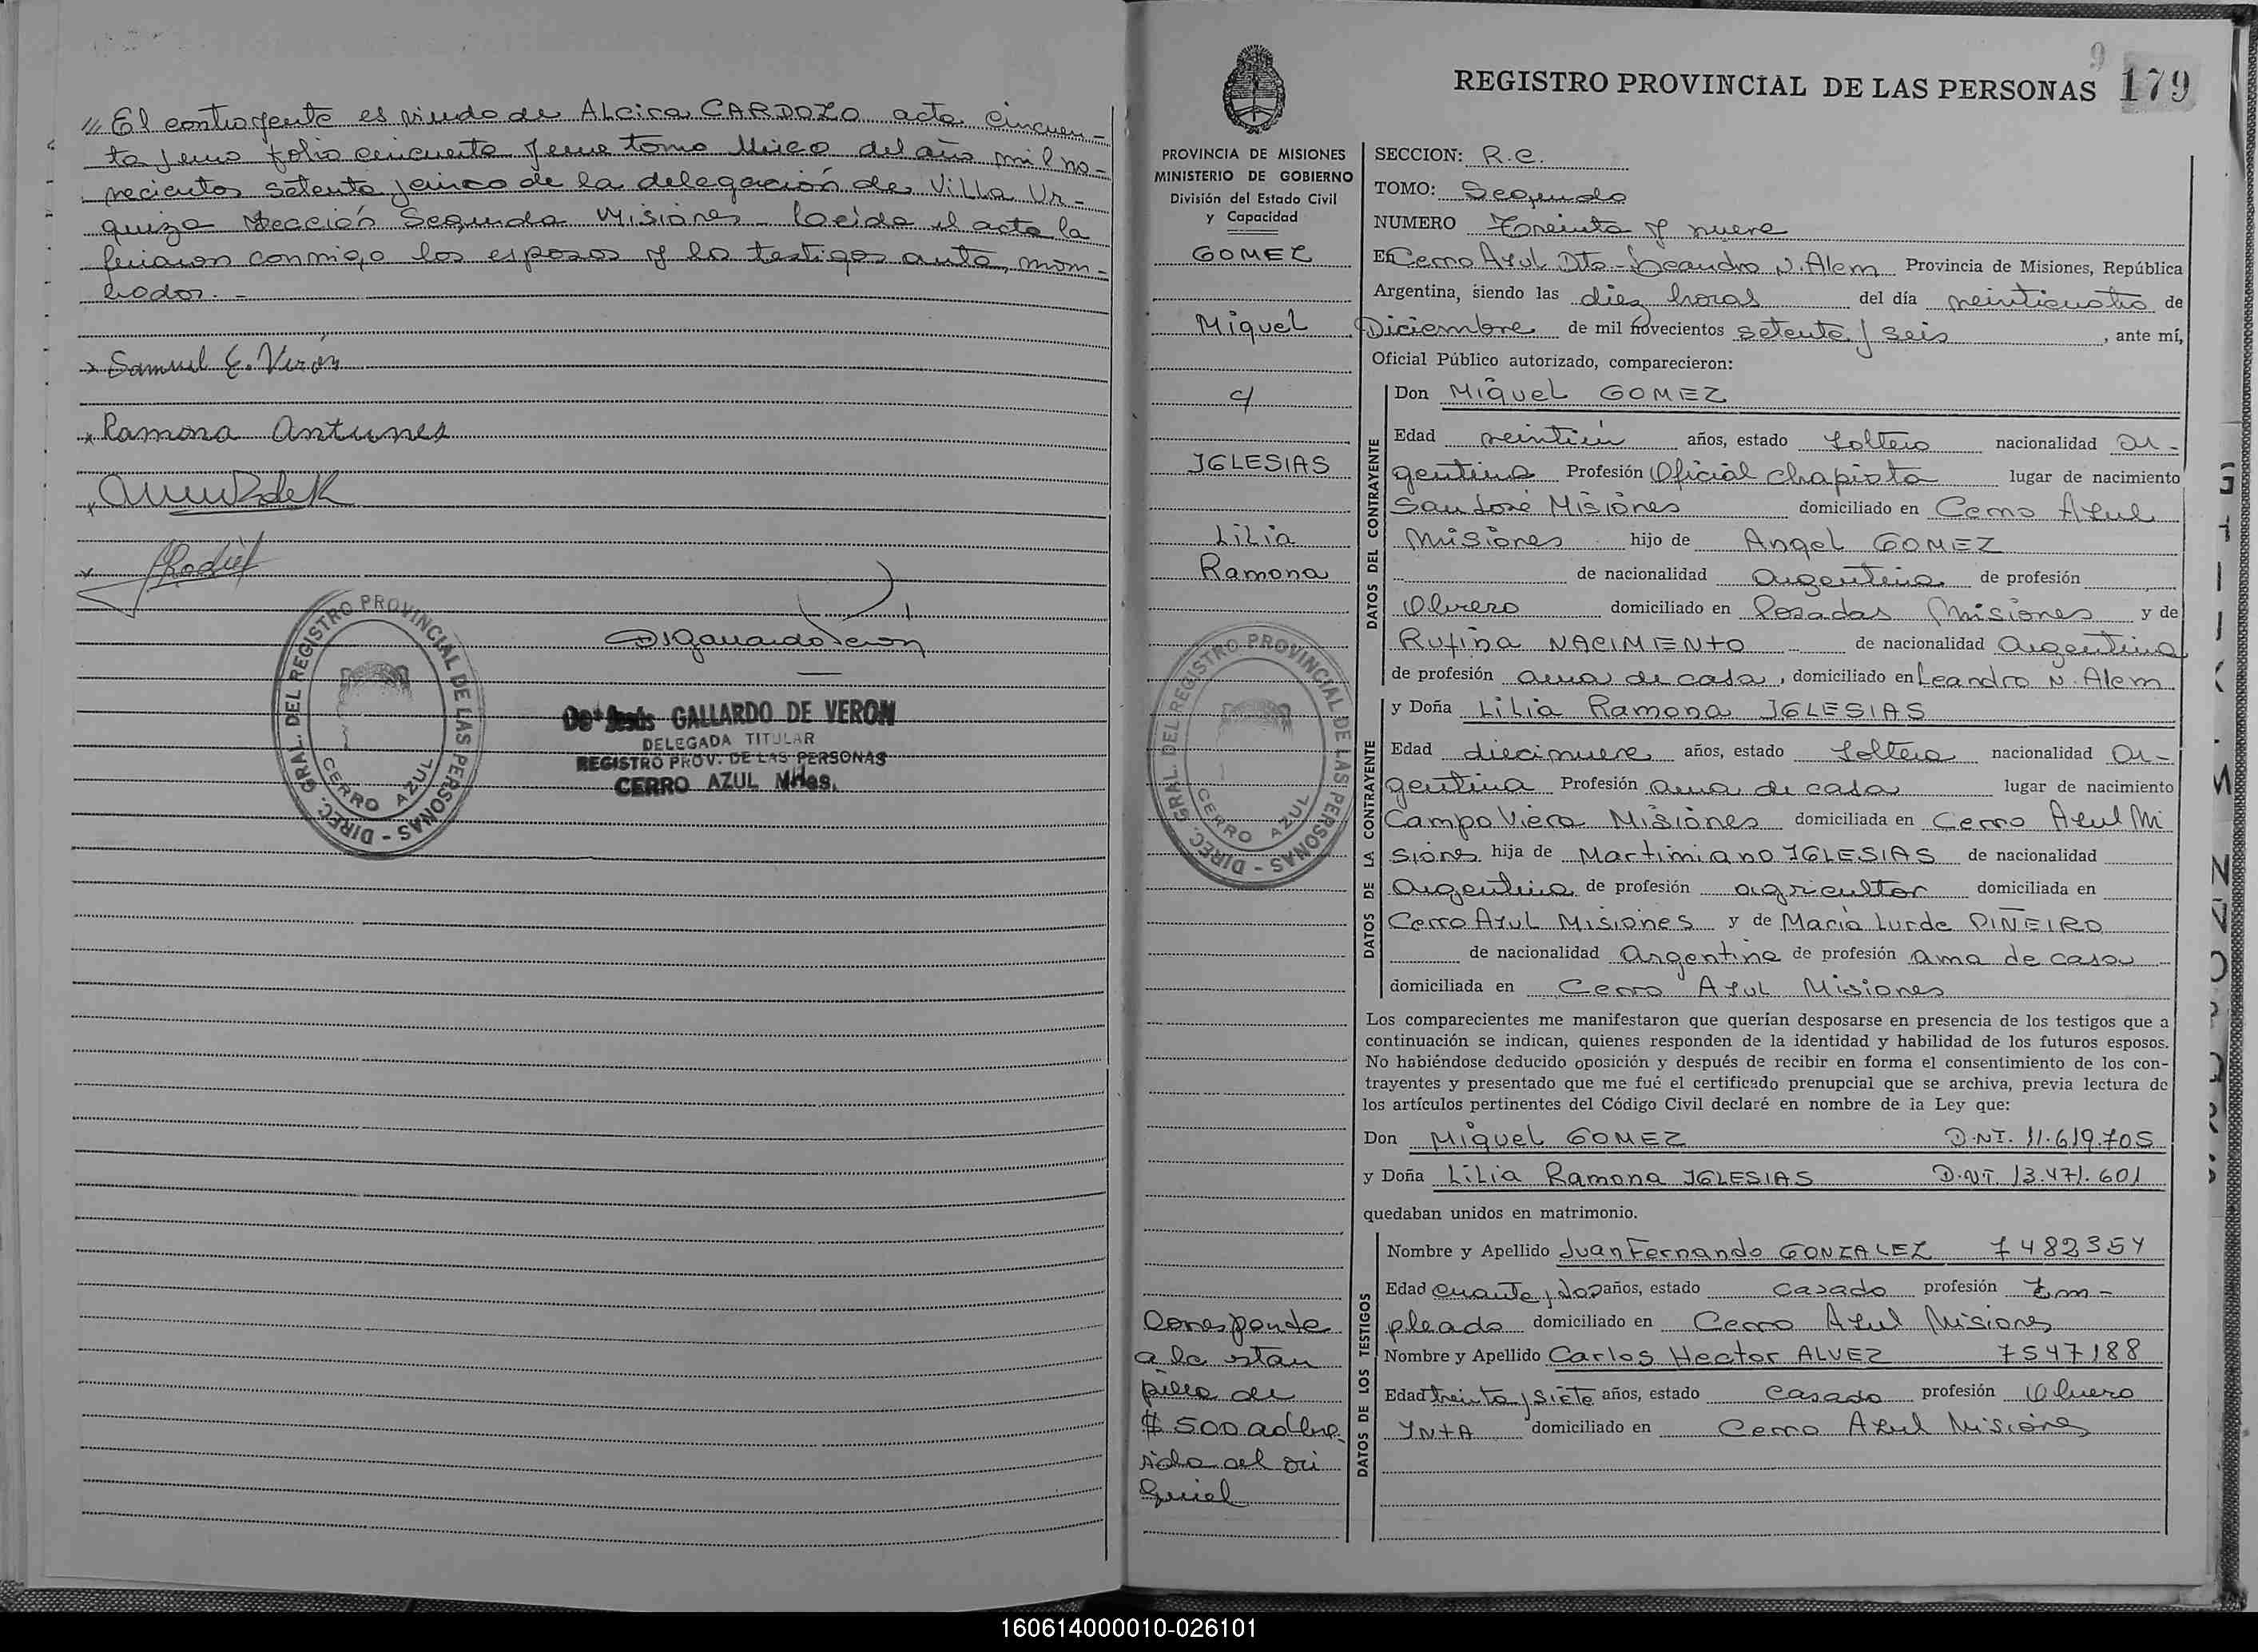 /// El contrayente es viudo de ALCira CARDOZO acta cincuen-
ta y uno folio cincuenta y uno tomo Único del año mil no-
vecientos setenta y cinco de la delegación de Villa Ur-
quiza Sección Segunda Misiones - Leida el acta la
firmaron conmigo los esposos y los testigos antes nom-
brados. -
x Samuel E. Verón
x Ramona Antunes
DIREC. GRAL. DEL REGISTRO PROVINCIAL DE LAS PERSONAS -
CERRO AZUL
De Jesús GALLARDO DE VERON
DELEGADA TITULAR
REGISTRO PROV. DE LAS PERSONAS
CERRO AZUL Mnes.
REGISTRO PROVINCIAL DE LAS PERSONAS
9
179
PROVINCIA DE MISIONES
MINISTERIO DE GOBIERNO
División del Estado Civil
y Capacidad
GOMEZ
Miguel
c/
IGLESIAS
Lilia
Ramona
DIREC. GRAL. DEL REGISTRO PROVINCIAL DE LAS PERSONAS -
CERRO AZUL
Corresponde
a la estam
pilla de
$ 500 adhe
rida al ori
ginal
SECCION: R.C.
TOMO: Segundo
NUMERO Treinta y nueve
En Cerro Azul Dto - Leandro N. Alem Provincia de Misiones, República
Argentina, siendo las diez horas del día veinticuatro de
Diciembre de mil novecientos setenta y seis, ante mí,
Oficial Público autorizado, comparecieron:
DATOS DEL CONTRAYENTE
Don Miguel GOMEZ
Edad veintiún años, estado soltero nacionalidad ar-
gentina Profesión Oficial Chapista lugar de nacimiento
San José Misiones domiciliado en Cerro Azul
Misiones hijo de Angel GOMEZ
de nacionalidad Argentina de profesión
Obrero domiciliado en Posadas Misiones y de
Rufina NACIMIENTO de nacionalidad Argentina
de profesión ama de casa, domiciliado en Leandro N. Alem
DATOS DE LA CONTRAYENTE
y Doña Lilia Ramona IGLESIAS
Edad diecinueve años, estado Soltera nacionalidad Ar-
gentina Profesión ama de casa lugar de nacimiento
Campo Viera Misiones domiciliada en Cerro Azul Mi
siones hija de Martimiano IGLESIAS de nacionalidad
Argentina de profesión agricultor domiciliada en
Cerro Azul Misiones y de María Lurde PIÑEIRO
de nacionalidad Argentina de profesión ama de casa
domiciliada en Cerro Azul Misiones
Los comparecientes me manifestaron que querían desposarse en presencia de los testigos que a
continuación se indican, quienes responden de la identidad y habilidad de los futuros esposos.
No habiéndose deducido oposición y después de recibir en forma el consentimiento de los con-
trayentes y presentado que me fué el certificado prenupcial que se archiva, previa lectura de
los artículos pertinentes del Código Civil declaré en nombre de la Ley que:
Don Miguel GOMEZ D.NI. 11.619.705
y Doña Lilia Ramona IGLESIAS D.NI 13.471.601
quedaban unidos en matrimonio.
DATOS DE LOS TESTIGOS
Nombre y Apellido Juan Fernando GONZALEZ 7482354
Edad cuarenta y dos años, estado casado profesión Em-
pleado domiciliado en Cerro Azul Misiones
Nombre y Apellido Carlos Hector ALVEZ 7547188
Edad treinta y siete años, estado Casado profesión Obrero
INTA domiciliado en Cerro Azul Misiones
160614000010-026101